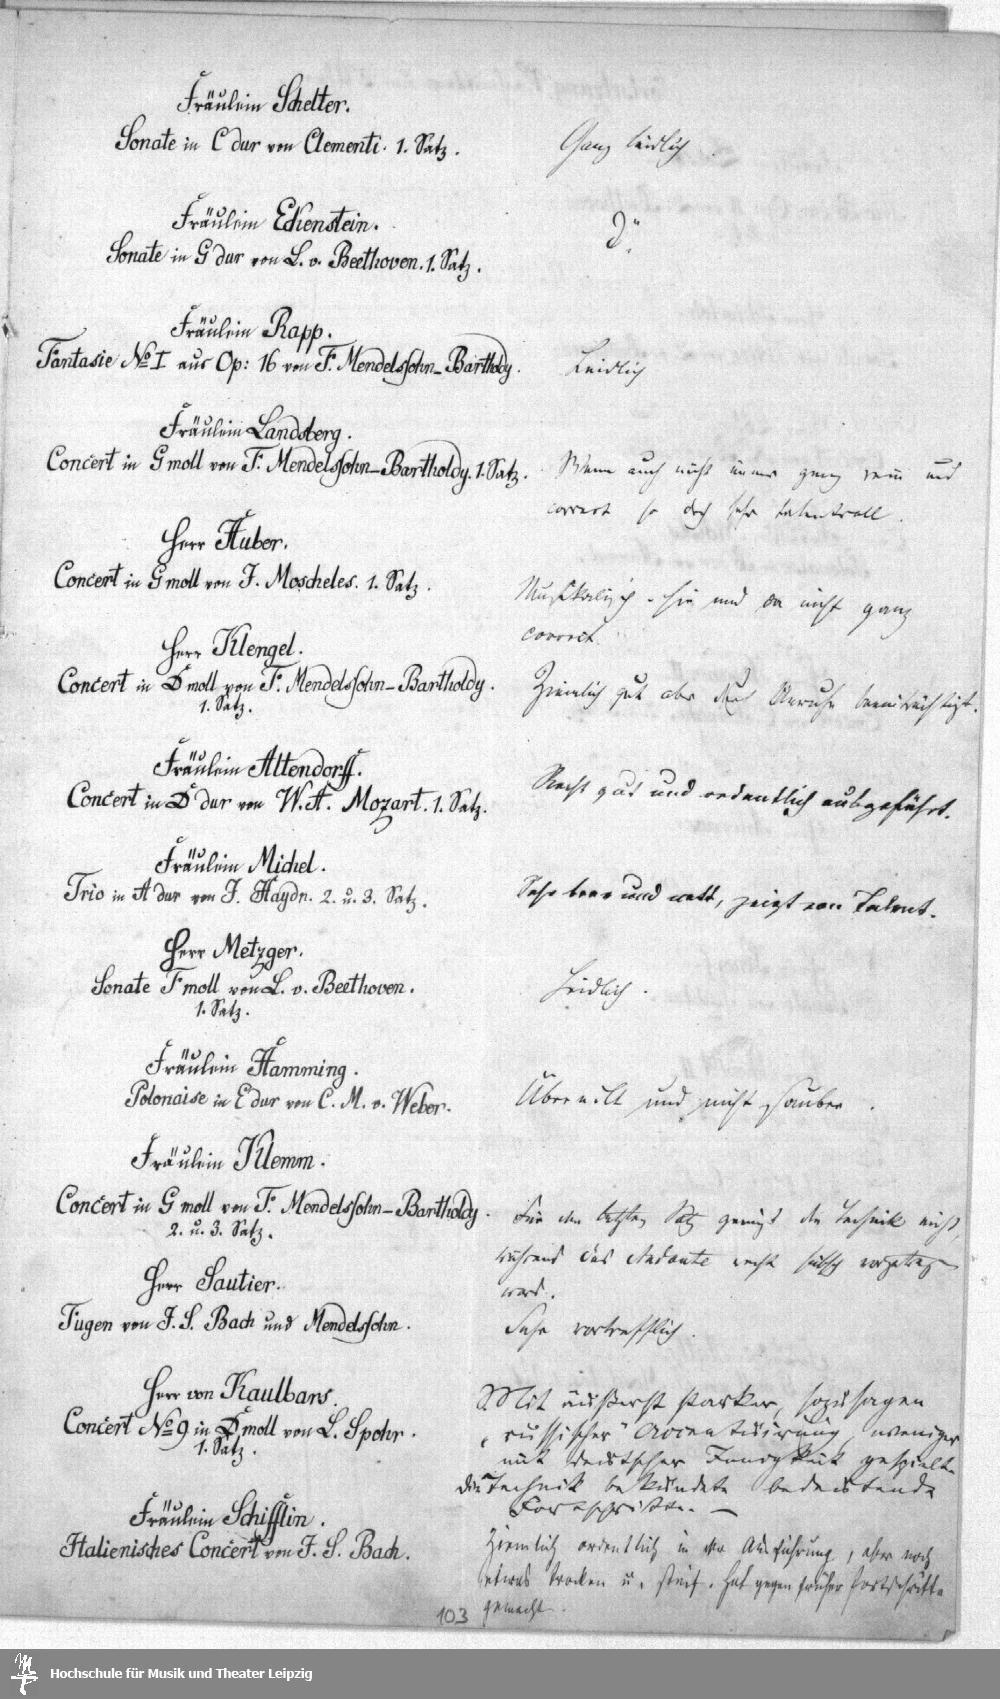 Fräulein Schelter.
Sonate in C dur von Clementi. 1. Satz.
Ganz leidlich.
Fräulein Eckenstein.
Sonate in G dur von L. v. Beethoven. 1. Satz.
Do.
Fräulein Rapp.
Fantasie No I aus Op: 16 von F. Mendelssohn-Bartholdy.
Leidlich
Fräulein Landsberg.
Concert in G moll von F. Mendelssohn-Bartholdy. 1. Satz.
Wenn auch nicht immer ganz rein und
correct so doch sehr talentvoll.
Herr Huber.
Concert in G moll von J. Moscheles. 1. Satz.
Musikalisch - hie und da nicht ganz
correct.
Herr Klengel.
Concert in D moll von F. Mendelssohn-Bartholdy.
1. Satz.
Ziemlich gut aber durch Unruhe beeinträchtigt.
Fräulein Altendorff.
Concert in D dur von W. A. Mozart. 1. Satz.
Recht gut und ordentlich ausgeführt.
Fräulein Michel.
Trio in A dur von J. Haydn. 2. u. 3. Satz.
Sehr brav und nett, zeigt von Talent.
Herr Metzger.
Sonate F moll von L. v. Beethoven.
1. Satz.
Leidlich.
Fräulein Hamming.
Polonaise in E dur von C. M. v. Weber.
Übereilt und nicht sauber.
Fräulein Klemm.
Concert in G moll von F. Mendelssohn-Bartholdy.
2. u. 3. Satz.
Für den letzten Satz genügt die Technik nicht,
während das Andante recht hübsch vorgetragen
ward.
Herr Sautier.
Fugen von J. S. Bach und Mendelssohn.
Sehr vortrefflich.
Herr von Kaulbars.
Concert No 9 in D moll von L. Spohr.
1. Satz.
Mit äußerst starker, sozusagen
„russischer" Accentuirung, weniger
mit deutscher gespielt.
Die Technik bekundete bedeutende
Fortschritte. —
Fräulein Schifflin.
Italienisches Concert von J. S. Bach.
Ziemlich ordentlich in der Ausführung, aber noch
etwas trocken u. steif. Hat gegen früher Fortschritte
gemacht.
103
Hochschule für Musik und Theater Leipzig